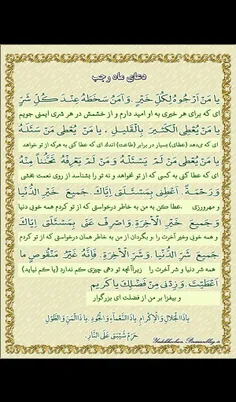 دعای ماه رجب
یا مَنْ اَرْجُوهُ لِکُلِّ خَیْرٍ وَ آمَنُ سَخَطَهُ عِنْدَ کُلِّ شَرٍّ
ای که برای هر خیری به او امید دارم و از خشمش در هر شری ایمنی جویم
یا مَنْ یُعْطِی الْکَثیرَ بِالْقَلیلِ . یا مَنْ یُعْطی مَنْ سَئَلَهُ
ای که می‌دهد (عطای) بسیار در برابر (طاعت) اندک ای که عطا کنی به هرکه از تو خواهد
یا مَنْ یُعْطی مَنْ لَمْ یَسْئَلْهُ وَ مَنْ لَمْ یَعْرِفْهُ تَحَنُّناً مِنْهُ
ای که عطا کنی به کسی که از تو نخواهد و نه تو را بشناسد از روی نعمت بخشی
وَ رَحْمَةً. اَعْطِنی بِمَسْئَلَتی اِیّاکَ جَمیعَ خَیْرِ الدُّنْیا
و مهرورزی . عطا کن به من به خاطر درخواستی که از تو کردم همه خوبی دنیا
وَ جَمیعَ خَیْرِ الْآخِرَةِ وَ اصْرِفْ عَنّی بِمَسْئَلَتی اِیّاکَ
و همه خوبی وخیر آخرت را و بگردان از من به خاطر همان درخواستی که از تو کردم
جَمیعَ شَرِّ الدُّنْیا .وَ شَرِّ الْآخِرَةِ. فَاِنَّهُ غَیْرُ مَنْقُوصٍ ما
همه شر دنیا و شر آخرت را زیرا آنچه تو دهی چیزی کم ندارد (یا کم نیاید)
اَعْطَیْتَ. وَ زِدْنی مِنْ فَضْلِکَ یا کَریمُ
و بیفزا بر من از فضلت ای بزرگوار
یا ذَا الْجَلالِ وَ الْاِکْرامِ یا ذَا النَّعْماءِ وَ الْجُودِ یا ذَا الْمَنِّ وَ الطَّوْلِ
حَرِّمْ شَیْبَتی عَلَی النّارِ